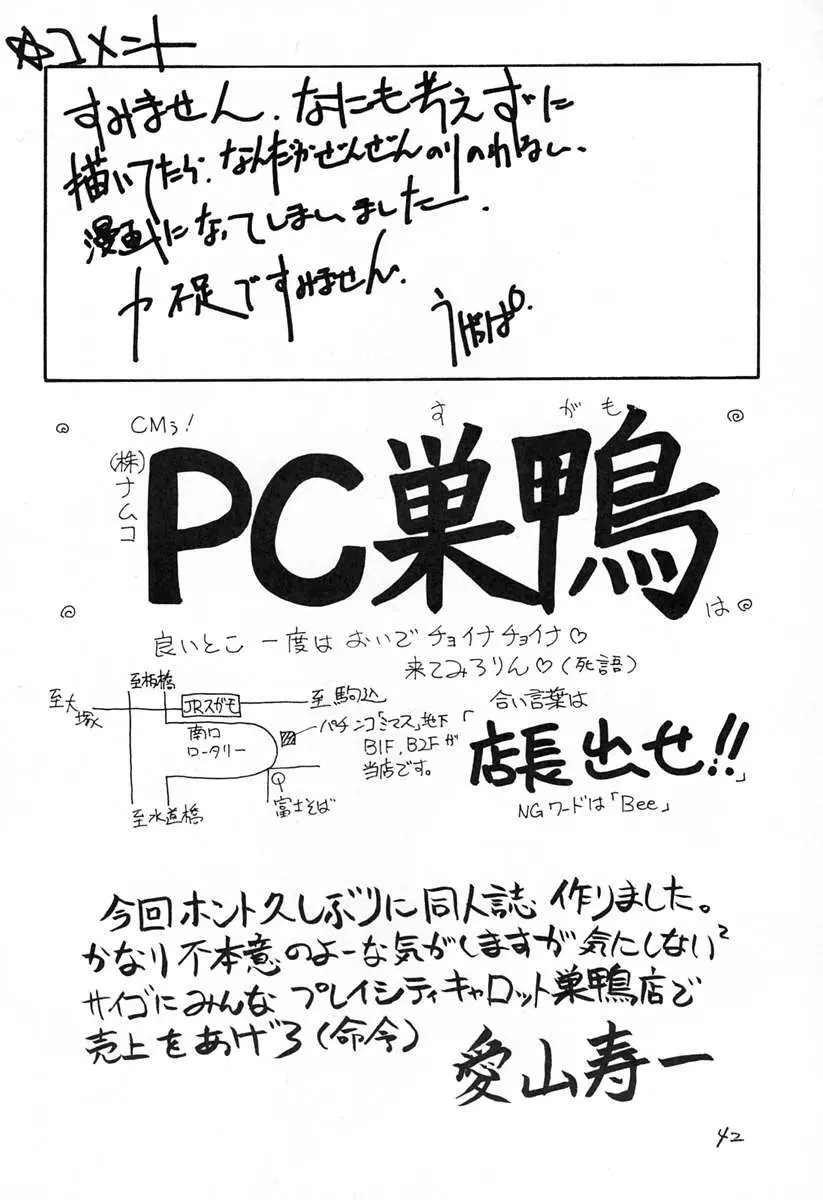 ☆コメント
すみません、なにも考えずに
描いてたら、なんだかぜんぜんのりのわるい、
漫画になってしまいましたー、
力不足ですみません、
CMぅ!
(株)ナムコ
すがも
PC巣鴨
は
良いとこ 一度は おいで チョイナチョイナ♡
来てみろりん♡(死語)
至大塚
至板橋
JRスガモ
至駒込
南口
ロータリー
パチンコ「ミマス」地下
B1F、B2Fが
当店です。
富士そば
至水道橋
合い言葉は
「店長出せ!!」
NGワードは「Bee」
今回ホント久しぶりに同人誌 作りました。
かなり不本意のよーな気がしますが気にしない²
サイゴにみんな プレイシティキャロット巣鴨店で
売上をあげろ(命令)
愛山寿一
42